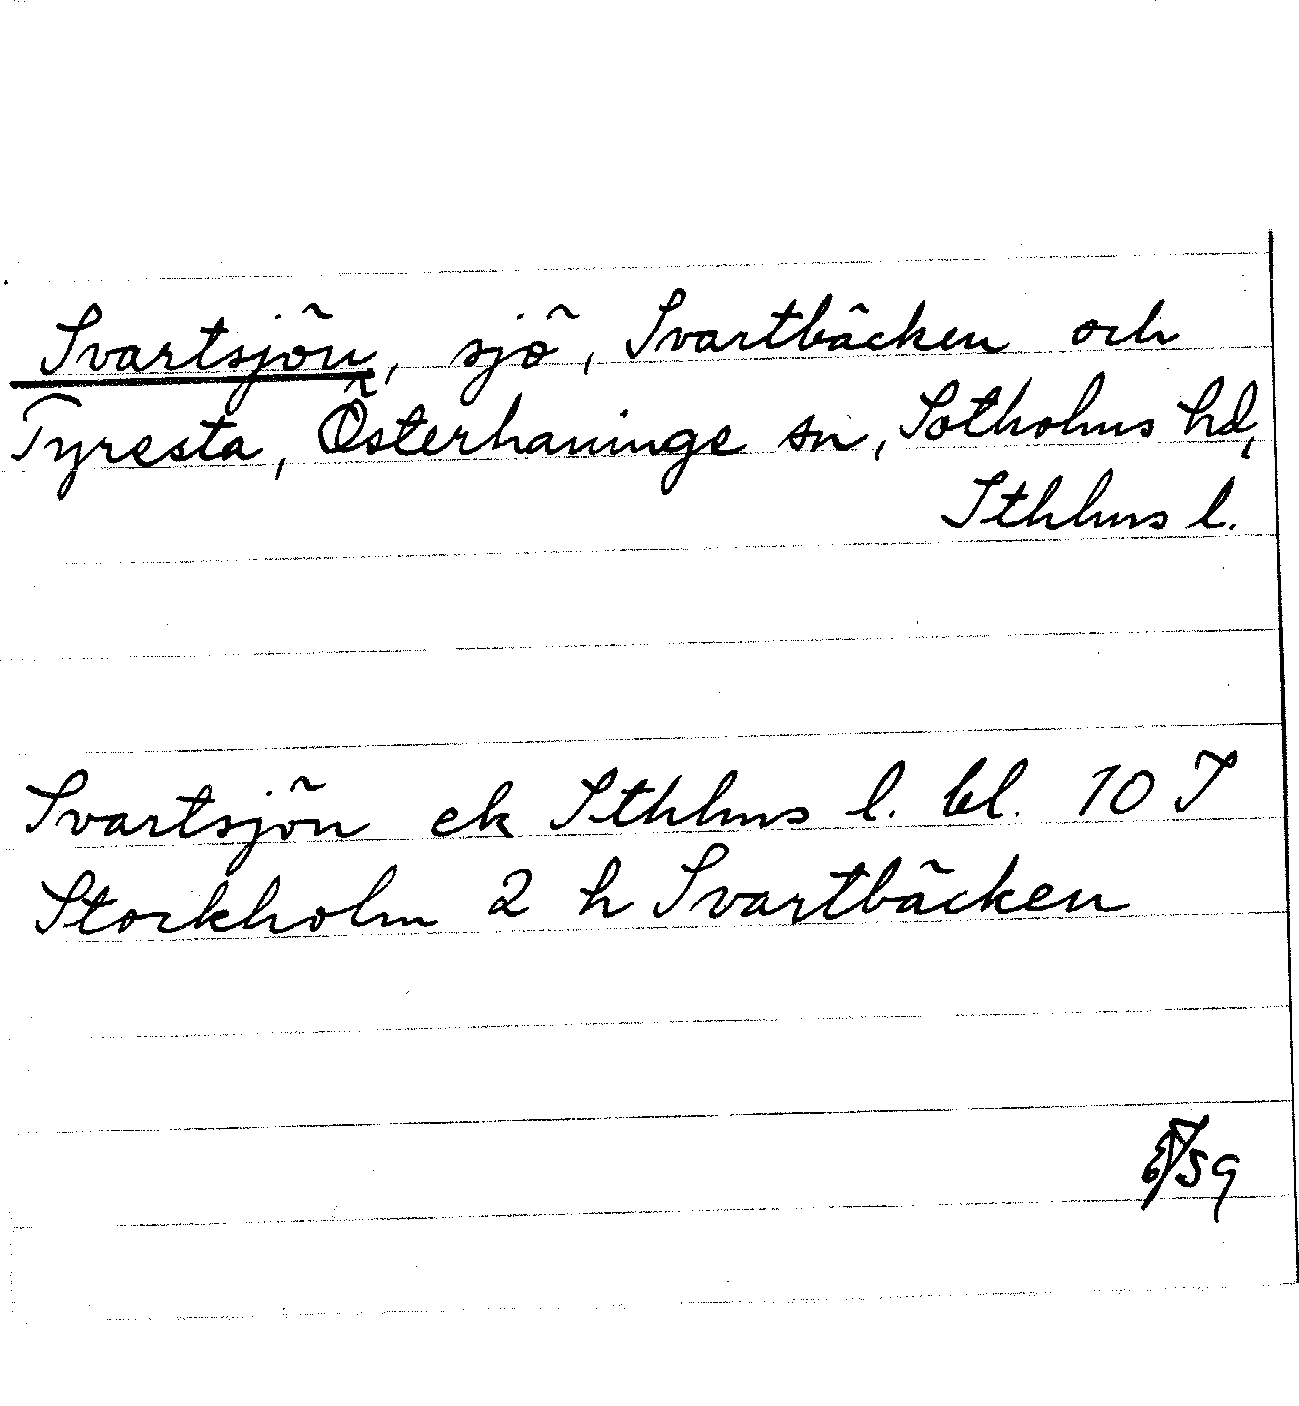 Svartsjön, sjö, Svartbäcken och
Tyresta, Österhaninge sn, Sotholms hd,
Sthlms l.
Svartsjön ek Sthlms l. bl. 10 I
Stockholm 2 h Svartbäcken
/59